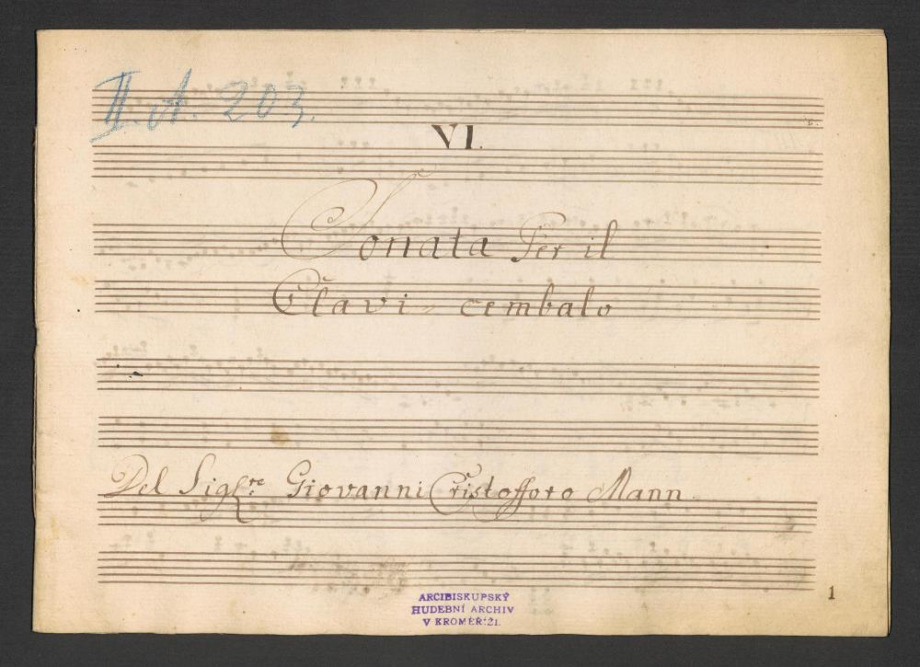 II. A. 203.
VI.
Sonata Per il
Clavi-cembalo
Del Sigre. Giovanni Cristofforo Mann
ARCIBISKUPSKÝ
HUDEBNÍ ARCHIV
V KROMĚŘÍŽI.
1